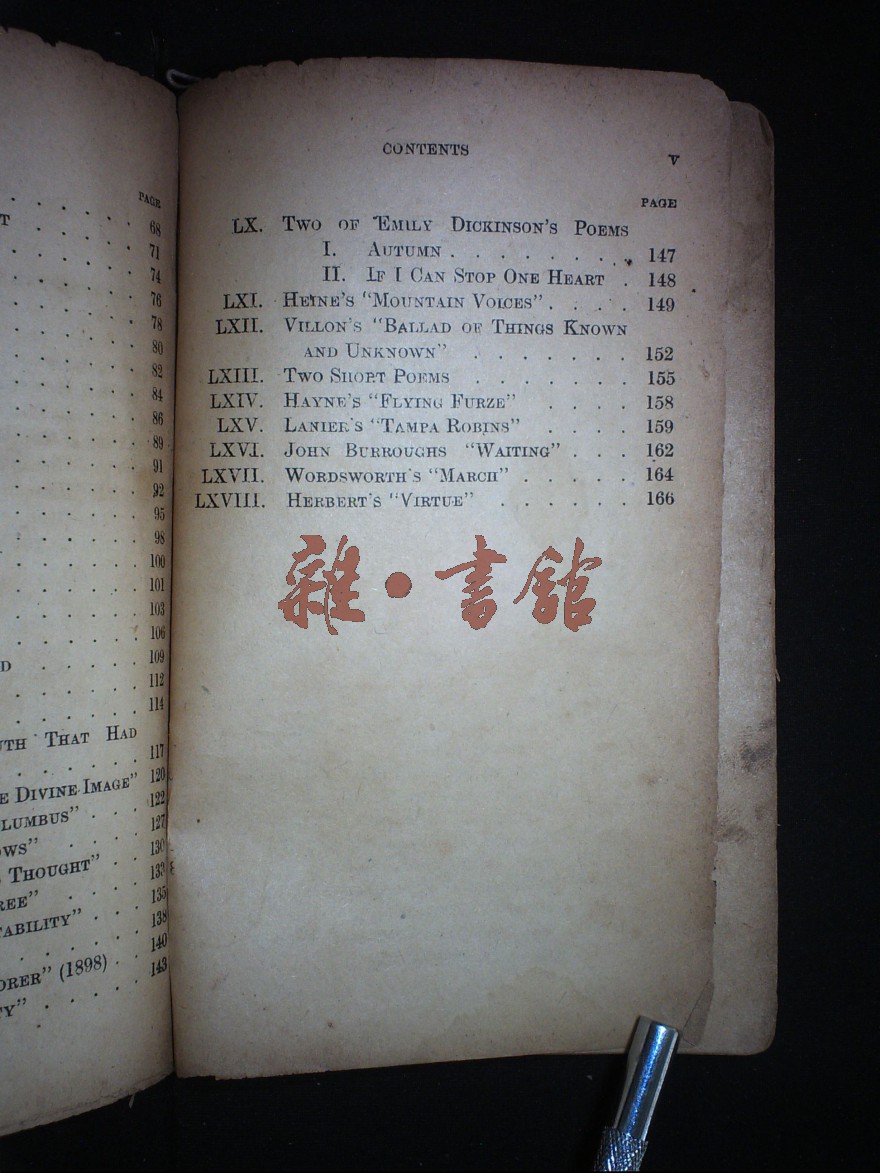 PAGE
68
71
74
76
78
80
82
84
86
89
91
92
95
98
100
101
103
106
109
112
114
THAT HAD
117
DIVINE IMAGE” 120
122
127
130
THOUGHT” . . 133
135
138
140
(1898) . . 143
CONTENTS V
PAGE
LX. TWO OF EMILY DICKINSON'S POEMS
I. AUTUMN . . . . . . . . 147
II. IF I CAN STOP ONE HEART . 148
LXI. HEINE'S “MOUNTAIN VOICES” . . . . 149
LXII. VILLON'S “BALLAD OF THINGS KNOWN
AND UNKNOWN” . . . . . . . 152
LXIII. TWO SHORT POEMS . . . . . . . 155
LXIV. HAYNE'S “FLYING FURZE” . . . . 158
LXV. LANIER'S “TAMPA ROBINS” . . . . 159
LXVI. JOHN BURROUGHS “WAITING” . . . 162
LXVII. WORDSWORTH'S “MARCH” . . . . . 164
LXVIII. HERBERT'S “VIRTUE” . . . . . . 166
雜·書館